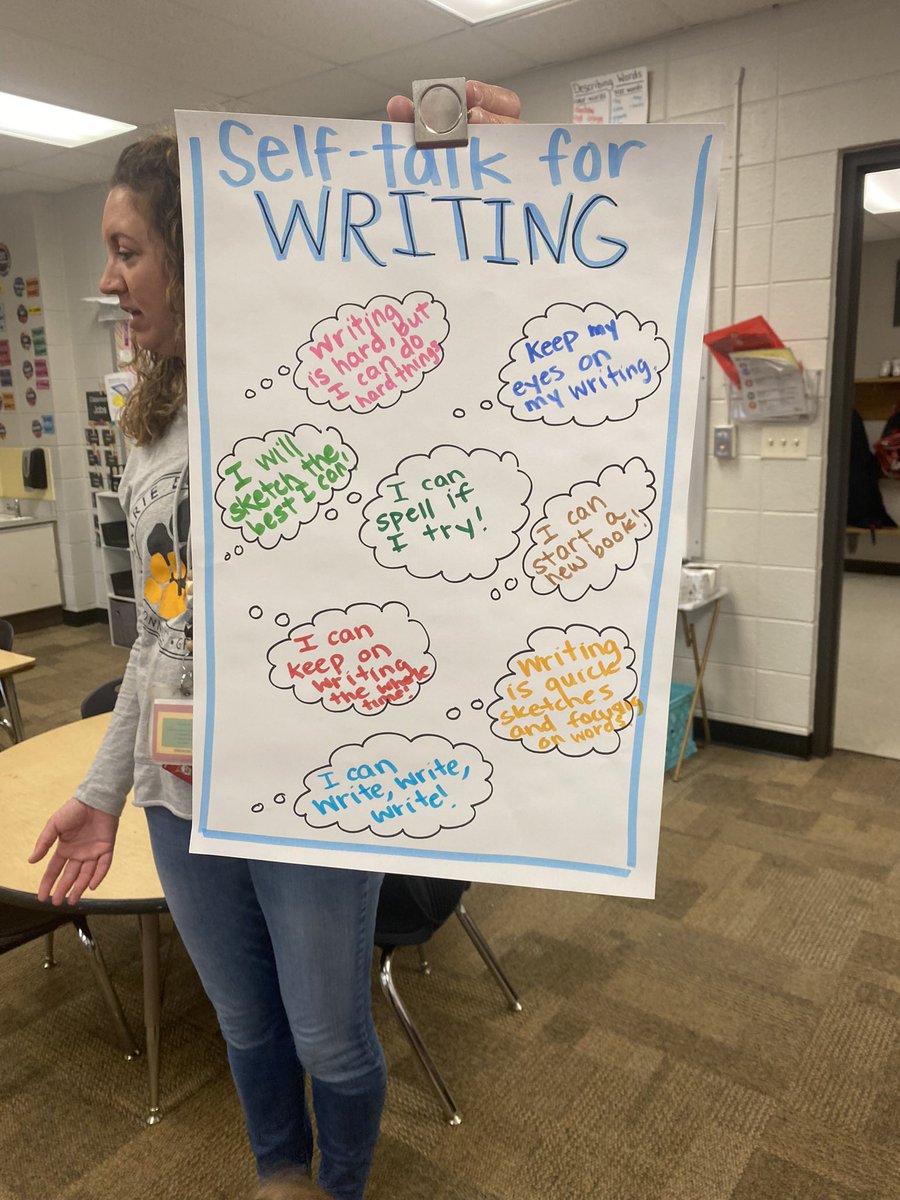 Self-talk for
WRITING
Writing
is hard, but
I can do
hard things
Keep my
eyes on
my writing.
I will
sketch the
best I can.
I can
spell if
I try!
I can
start a
new book!
I can
keep on
writing
the whole
time!
Writing
is quick
sketches
and focusing
on words
I can
write, write,
write!
Describing Words